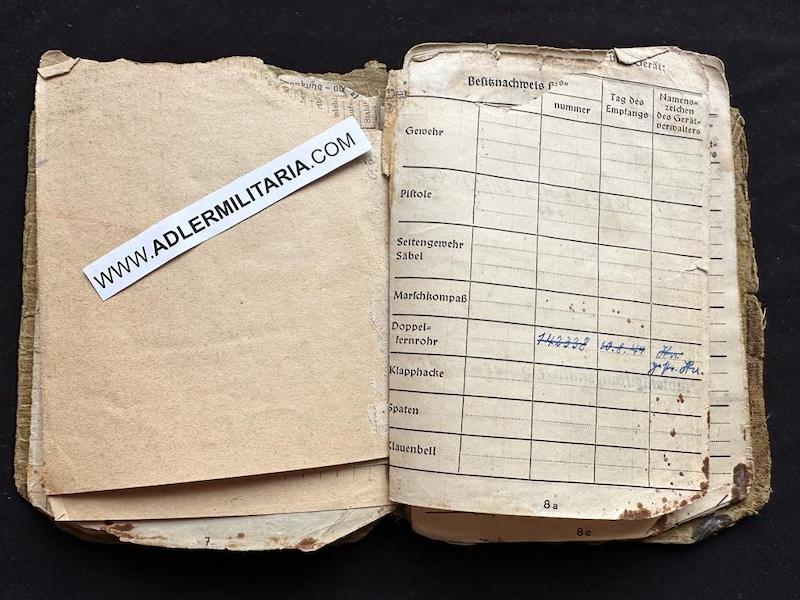 WWW.ADLERMILITARIA.COM
Gerät:
Besitznachweis
nummer
Tag des
Empfangs
Namens-
zeichen
des Gerät-
verwalters
Gewehr
Pistole
Seitengewehr
Säbel
Marschkompaß
Doppel-
fernrohr
743338
10.8.44
Klapphacke
Spaten
Klauenbeil
8a
7
8c